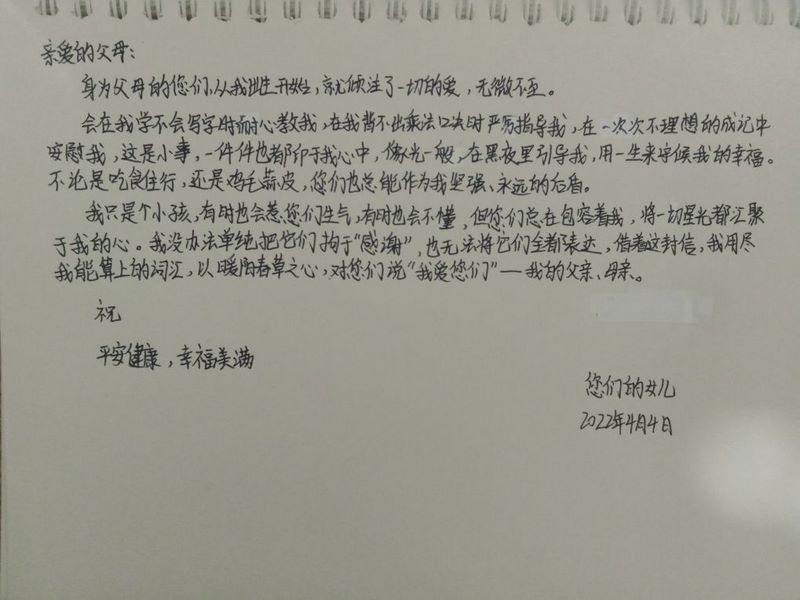 亲爱的父母：
身为父母的您们，从我出生开始，就倾注了一切的爱，无微不至。
会在我学不会写字时耐心教我，在我背不出乘法口决时严厉指导我，在一次次不理想的成记中
安慰我，这是小事，一件件也都印于我心中，像光一般，在黑夜里引导我，用一生来守候我的幸福。
不论是吃食住行，还是鸡毛蒜皮，您们也总能作为我坚强、永远的后盾。
我只是个小孩，有时也会惹您们生气，有时也会不懂，但您们总在包容着我，将一切星光都汇聚
于我的心。我没办法单纯把它们拘于“感谢”，也无法将它们全都表达，借着这封信，我用尽
我能算上的词汇，以暖阳春草之心，对您们说“我爱您们”—我的父亲、母亲。
祝
平安健康，幸福美满
您们的女儿
2022年4月4日